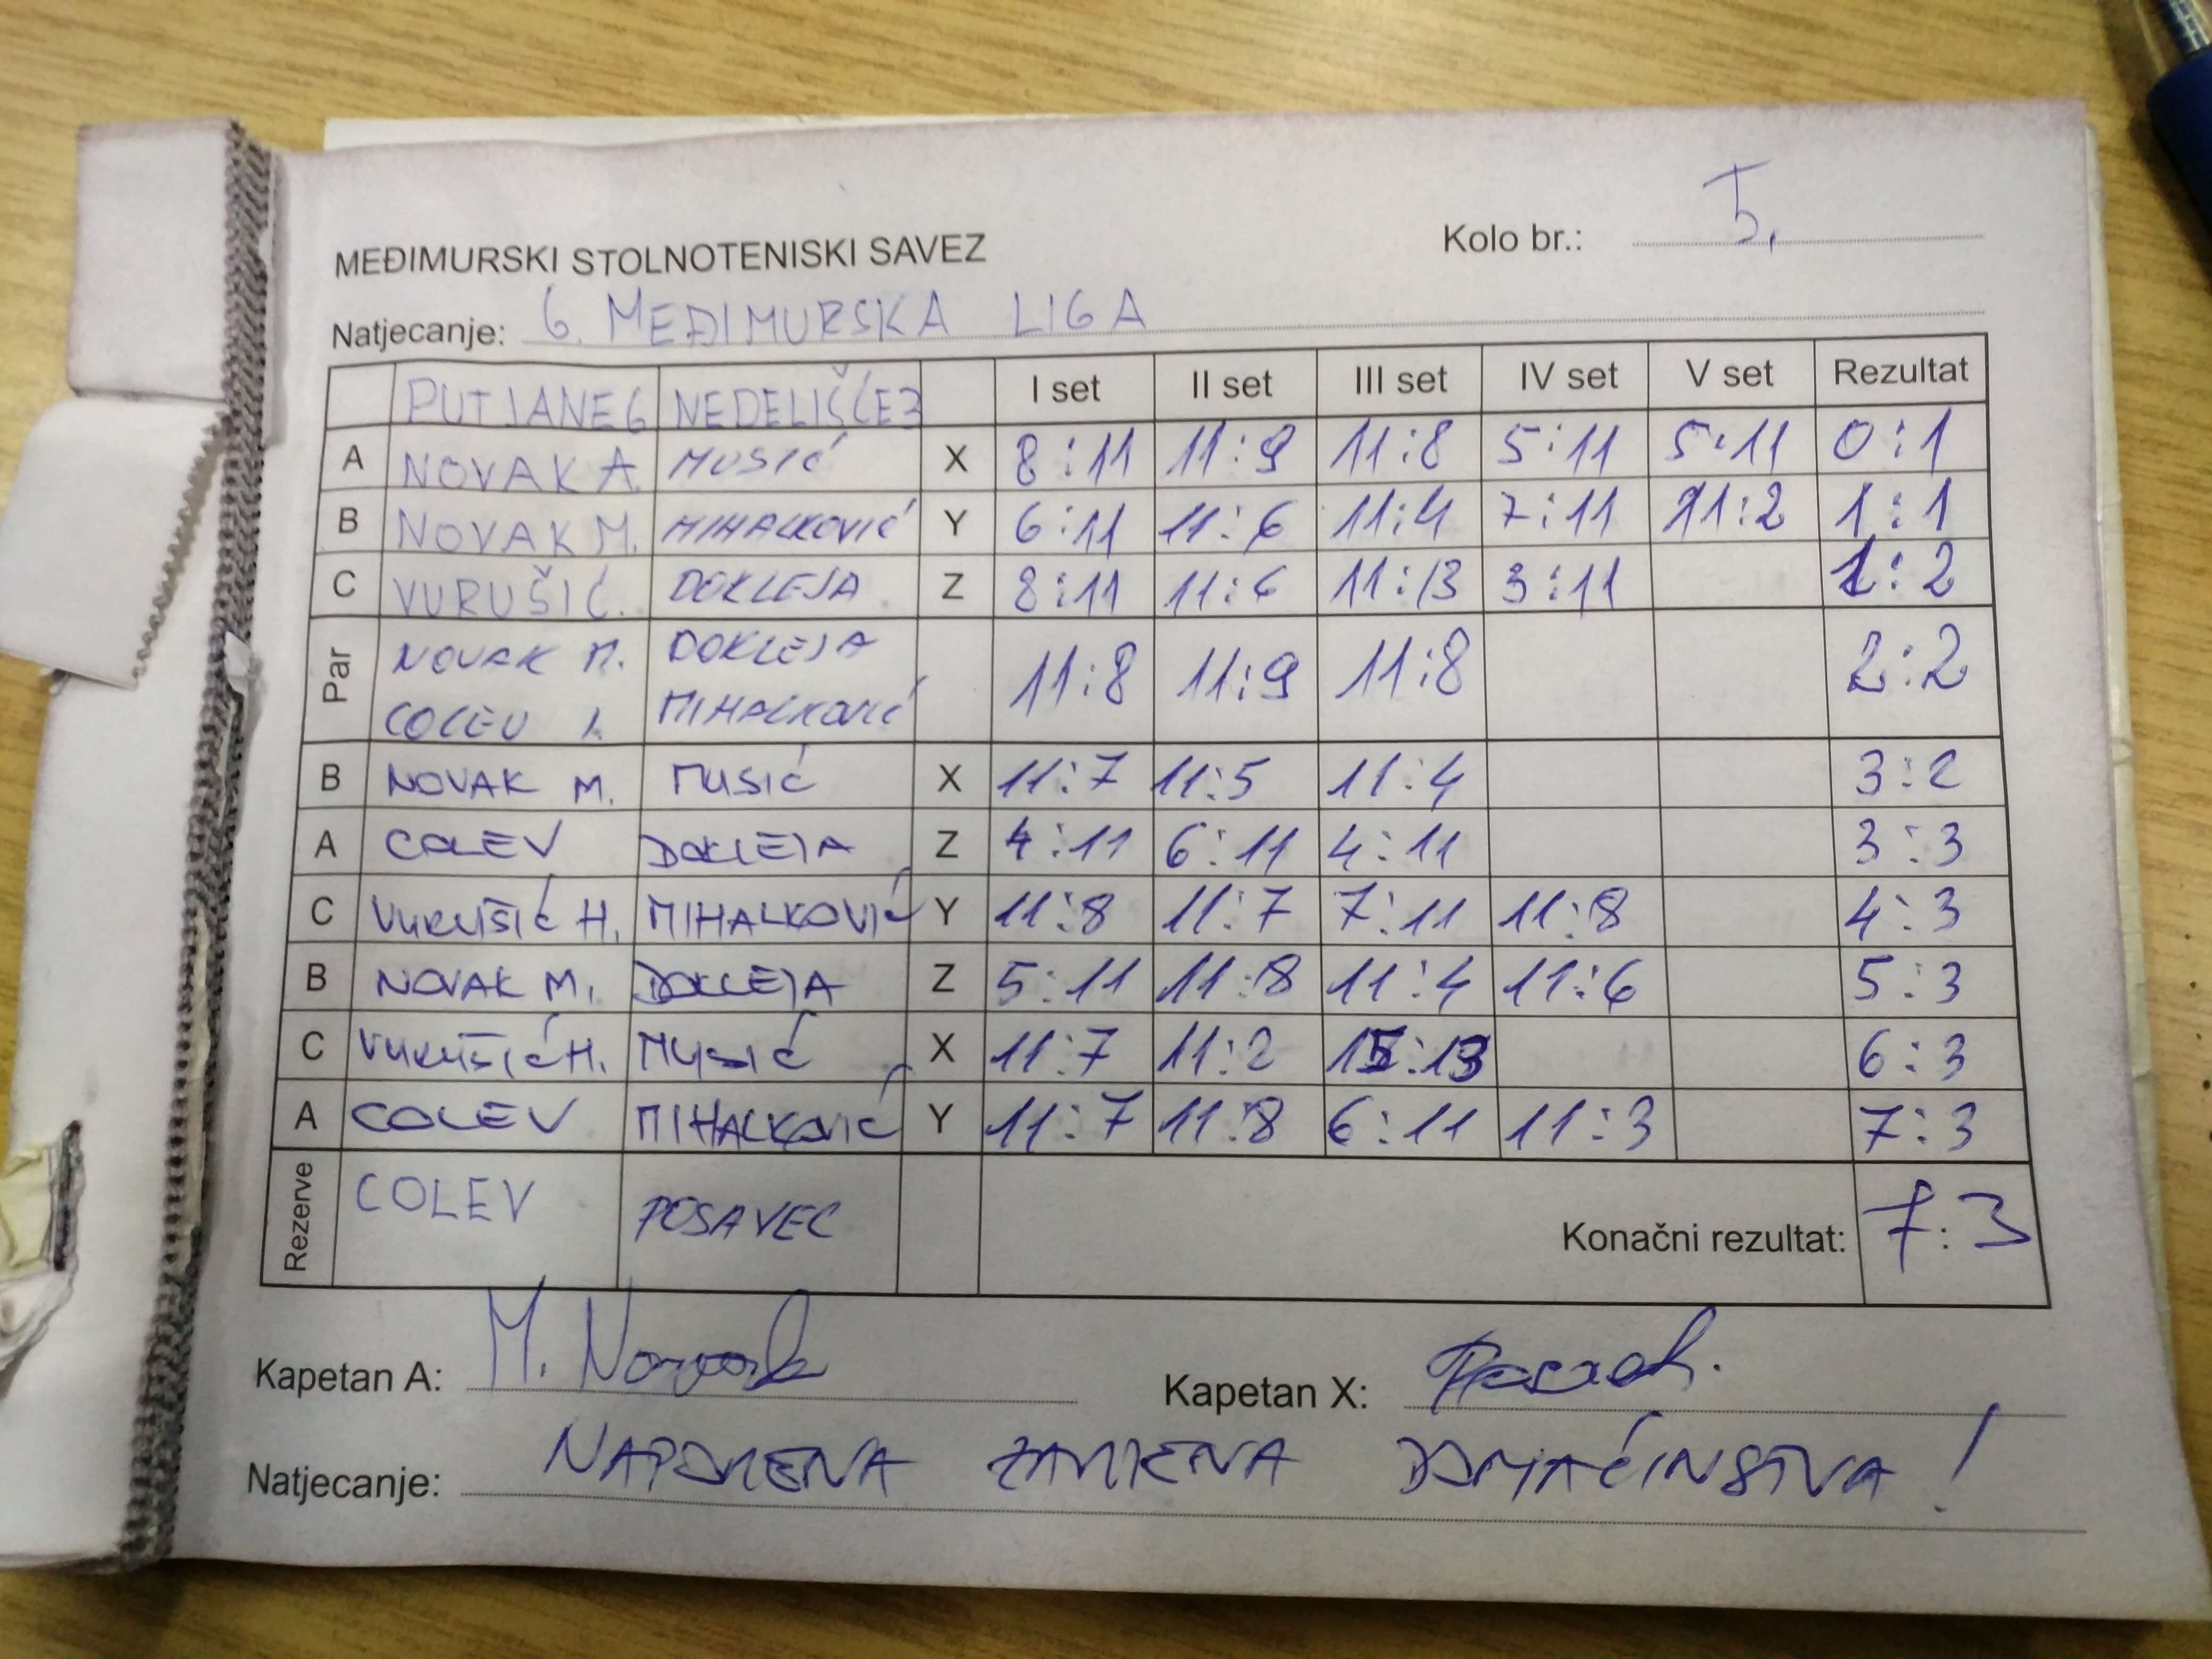 Kolo br.: 5.
MEĐIMURSKI STOLNOTENISKI SAVEZ
Natjecanje: 6. MEĐIMURSKA LIGA
PUTJANE 6 NEDELIŠĆE 3 I set II set III set IV set V set Rezultat
A NOVAK A. MUSIĆ X 8:11 11:9 11:8 5:11 5:11 0:1
B NOVAK M. MIHALKOVIĆ Y 6:11 11:6 11:4 7:11 11:2 1:1
C VURUŠIĆ. DOKLEJA Z 8:11 11:6 11:13 3:11 1:2
Par NOVAK M. DOKLEJA 11:8 11:9 11:8 2:2
COLEV I. MIHALKOVIĆ
B NOVAK M. MUSIĆ X 11:7 11:5 11:4 3:2
A COLEV DOKLEJA Z 4:11 6:11 4:11 3:3
C VURUŠIĆ H. MIHALKOVIĆ Y 11:8 11:7 7:11 11:8 4:3
B NOVAK M. DOKLEJA Z 5:11 11:8 11:4 11:6 5:3
C VURUŠIĆ H. MUSIĆ X 11:7 11:2 15:13 6:3
A COLEV MIHALKOVIĆ Y 11:7 11:8 6:11 11:3 7:3
Rezerve COLEV POSAVEC Konačni rezultat: 7:3
Kapetan A: M. Novak Kapetan X:
Natjecanje: NAPOMENA ZAMJENA DOMAĆINSTVA!